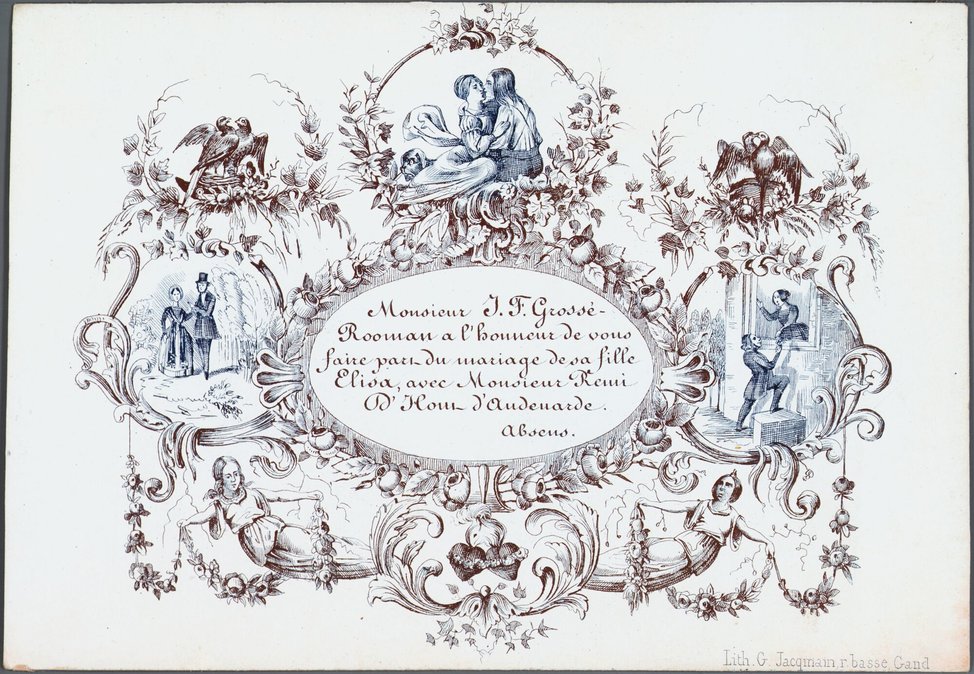 Monsieur J. F. Grossé-
Rooman a l'honneur de vous
faire part du mariage de sa fille
Elisa, avec Monsieur Remi
D'Hont d'Audenarde.
Absens.
Lith. G. Jacqmain, r. basse, Gand